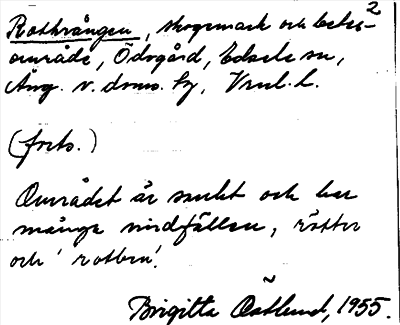 2
Rothvången, skogsmark och betes-
område, Ödsgård, Edsele sn,
Ång. v. doms. hg, Vnl. l.
(forts.)
Området är sankt och har
många vindfällen, rötter
och 'rotben'.
Brigitta Östlund, 1955.